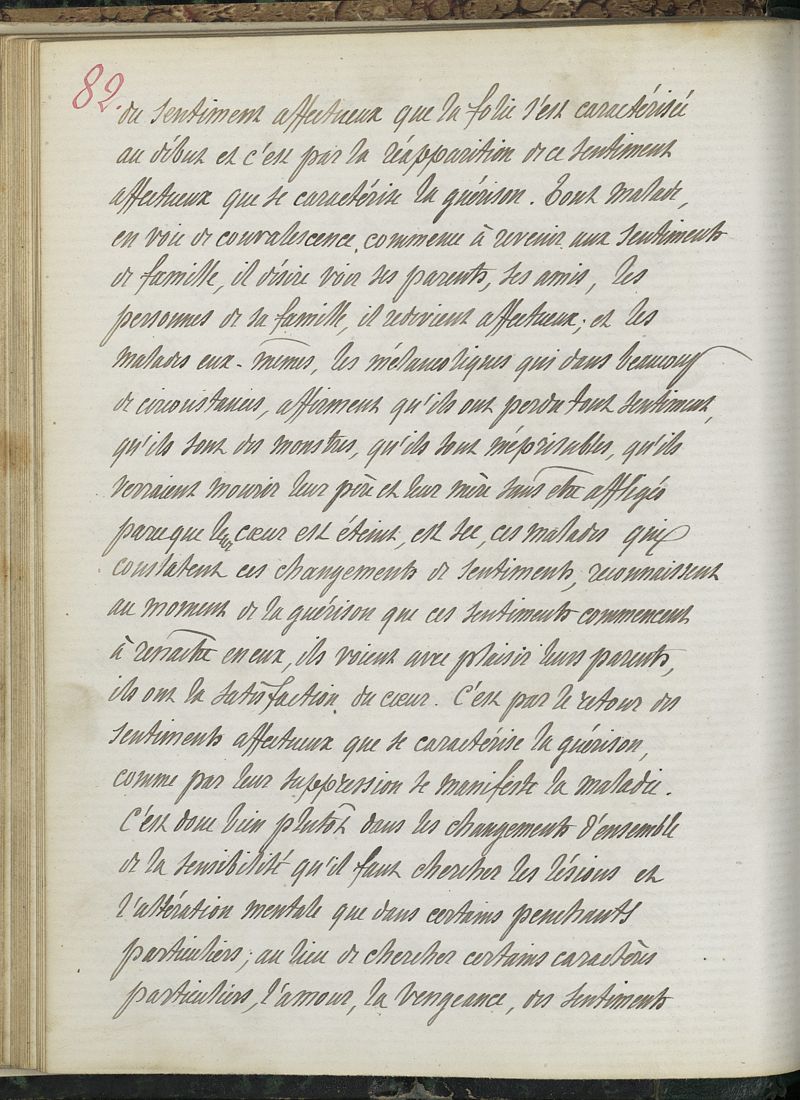 82.
du sentiment affectueux que la folie s'est caractérisée
au début et c'est par la réapparition de ce sentiment
affectueux que se caractérise la guérison. Tout malade,
en voie de convalescence, commence à revenir aux sentiments
de famille, il désire voir ses parents, ses amis, les
personnes de sa famille, il redevient affectueux; et les
malades eux-mêmes, les mélancoliques qui dans beaucoup
de circonstances, affirment qu'ils ont perdu tout sentiment,
qu'ils sont des monstres, qu'ils sont méprisables, qu'ils
verraient mourir leur père et leur mère sans être affligés
parce que leur cœur est éteint, est sec, ces malades qui
constatent ces changements de sentiments, reconnaissent
au moment de la guérison que ces sentiments commencent
à renaître en eux, ils voient avec plaisir leurs parents,
ils ont la satisfaction du cœur. C'est par le retour des
sentiments affectueux que se caractérise la guérison,
comme par leur suppression se manifeste la maladie.
C'est donc bien plutôt dans les changements d'ensemble
de la sensibilité qu'il faut chercher les lésions et
l'altération mentale que dans certains penchants
particuliers; au lieu de chercher certains caractères
particuliers, l'amour, la vengeance, des sentiments